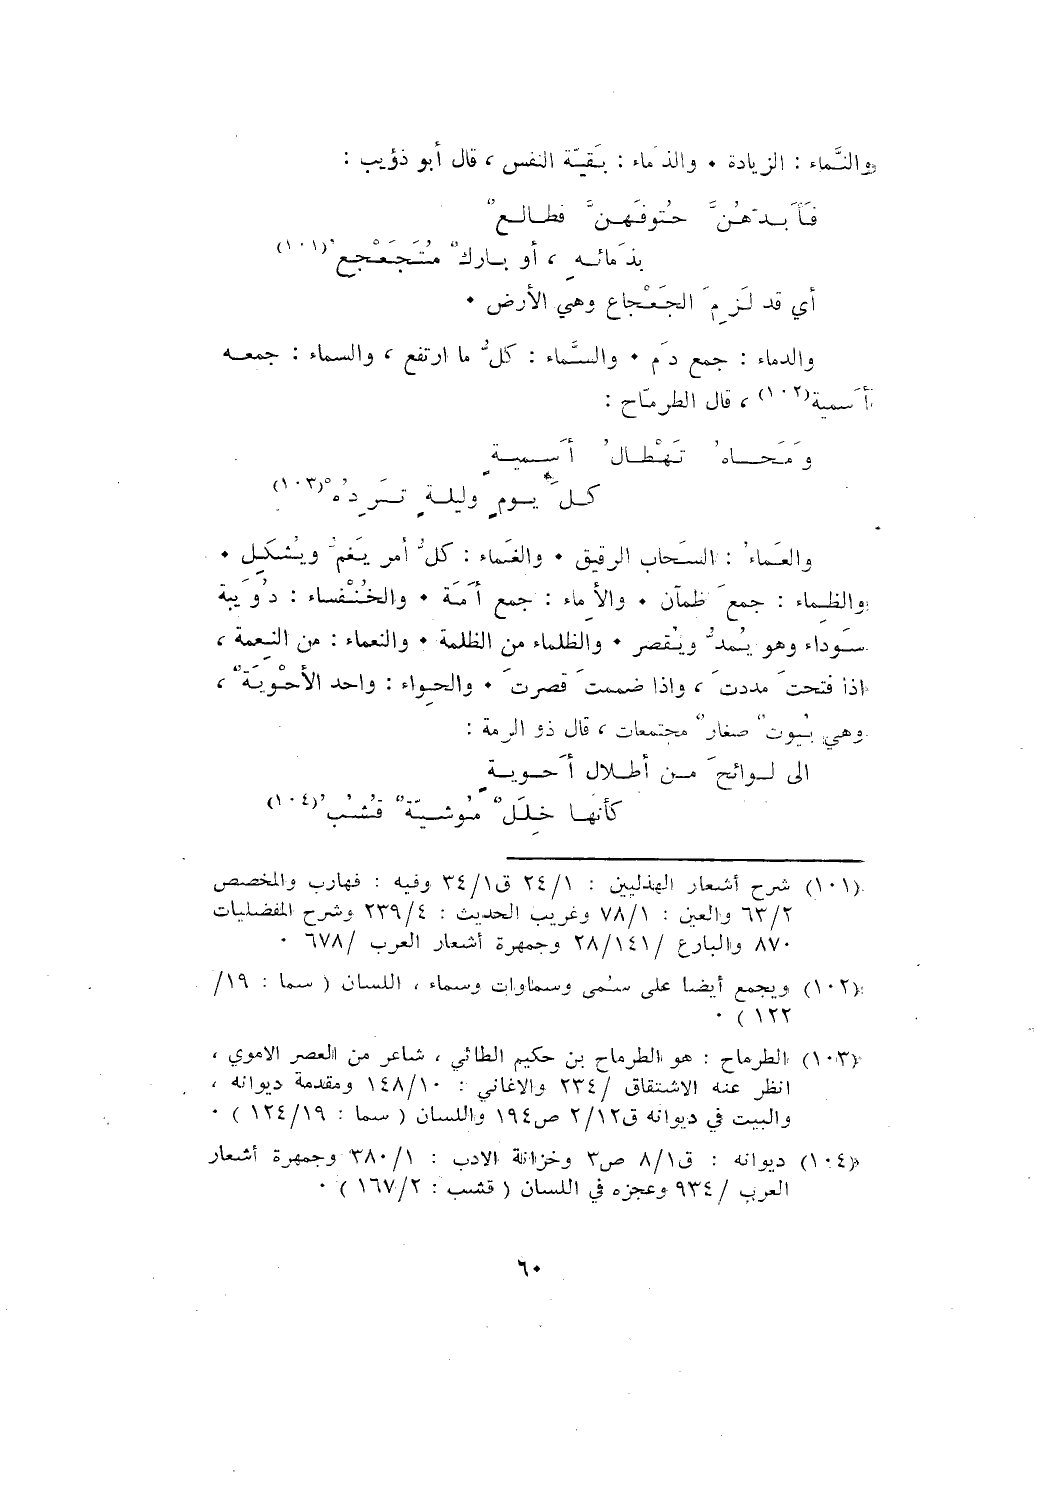 والنَّماء : الزيادة • والذَماء : بَقيّة النفس ، قال أبو ذؤيب :
فَأَبدَّهُنَّ حُتوفَهنَّ فطالعٌ
بذَمائهِ ، أو باركٌ مُتَجَعْجِعُ(١٠١)
أي قد لَزِمَ الجَعْجاع وهي الأرض •
والدماء : جمع دَم • والسَّماء : كلُّ ما ارتفع ، والسماء : جمعه
أَسمية(١٠٢) ، قال الطرمّاح :
ومَحَاهُ تَهْطالُ أَسميةٍ
كلَّ يومٍ وليلةٍ تَرِدُهْ(١٠٣)
والعَماءُ : السَحاب الرقيق • والغَماء : كلُّ أمر يَغمُّ ويُشكِل •
والظماء : جمعَ ظمآن • والأِماء : جمع أَمَة • والخُنْفساء : دُوَيبة
سَوداء وهو يُمدُّ ويُقصر • والظلماء من الظلمة • والنعماء : من النِعمة ،
اذا فتحتَ مددتَ ، واذا ضممتَ قصرتَ • والحِواء : واحد الأحْوِيَةٌ ،
وهي بُيوتٌ صغارٌ مجتمعات ، قال ذو الرمة :
الى لوائحَ من أطلال أَحويةٍ
كأنها خِلَلٌ مُوشيّةٌ قُشُبُ(١٠٤)
(١٠١) شرح أشعار الهذليين : ٢٤/١ ق٣٤/١ وفيه : فهارب والمخصص
٦٣/٢ والعين : ٧٨/١ وغريب الحديث : ٢٣٩/٤ وشرح المفضليات
٨٧٠ والبارع /٢٨/١٤١ وجمهرة أشعار العرب /٦٧٨ •
(١٠٢) ويجمع أيضا على سُمى وسماوات وسماء ، اللسان ( سما : ١٩/
١٢٢ ) •
(١٠٣) الطرماح : هو الطرماح بن حكيم الطائي ، شاعر من العصر الاموي ،
انظر عنه الاشتقاق /٢٣٤ والاغاني : ١٤٨/١٠ ومقدمة ديوانه ،
والبيت في ديوانه ق٢/١٢ ص١٩٤ واللسان ( سما : ١٢٤/١٩ ) •
(١٠٤) ديوانه : ق٨/١ ص٣ وخزانة الادب : ٣٨٠/١ وجمهرة أشعار
العرب /٩٣٤ وعجزه في اللسان ( قشب : ١٦٧/٢ ) •
٦٠